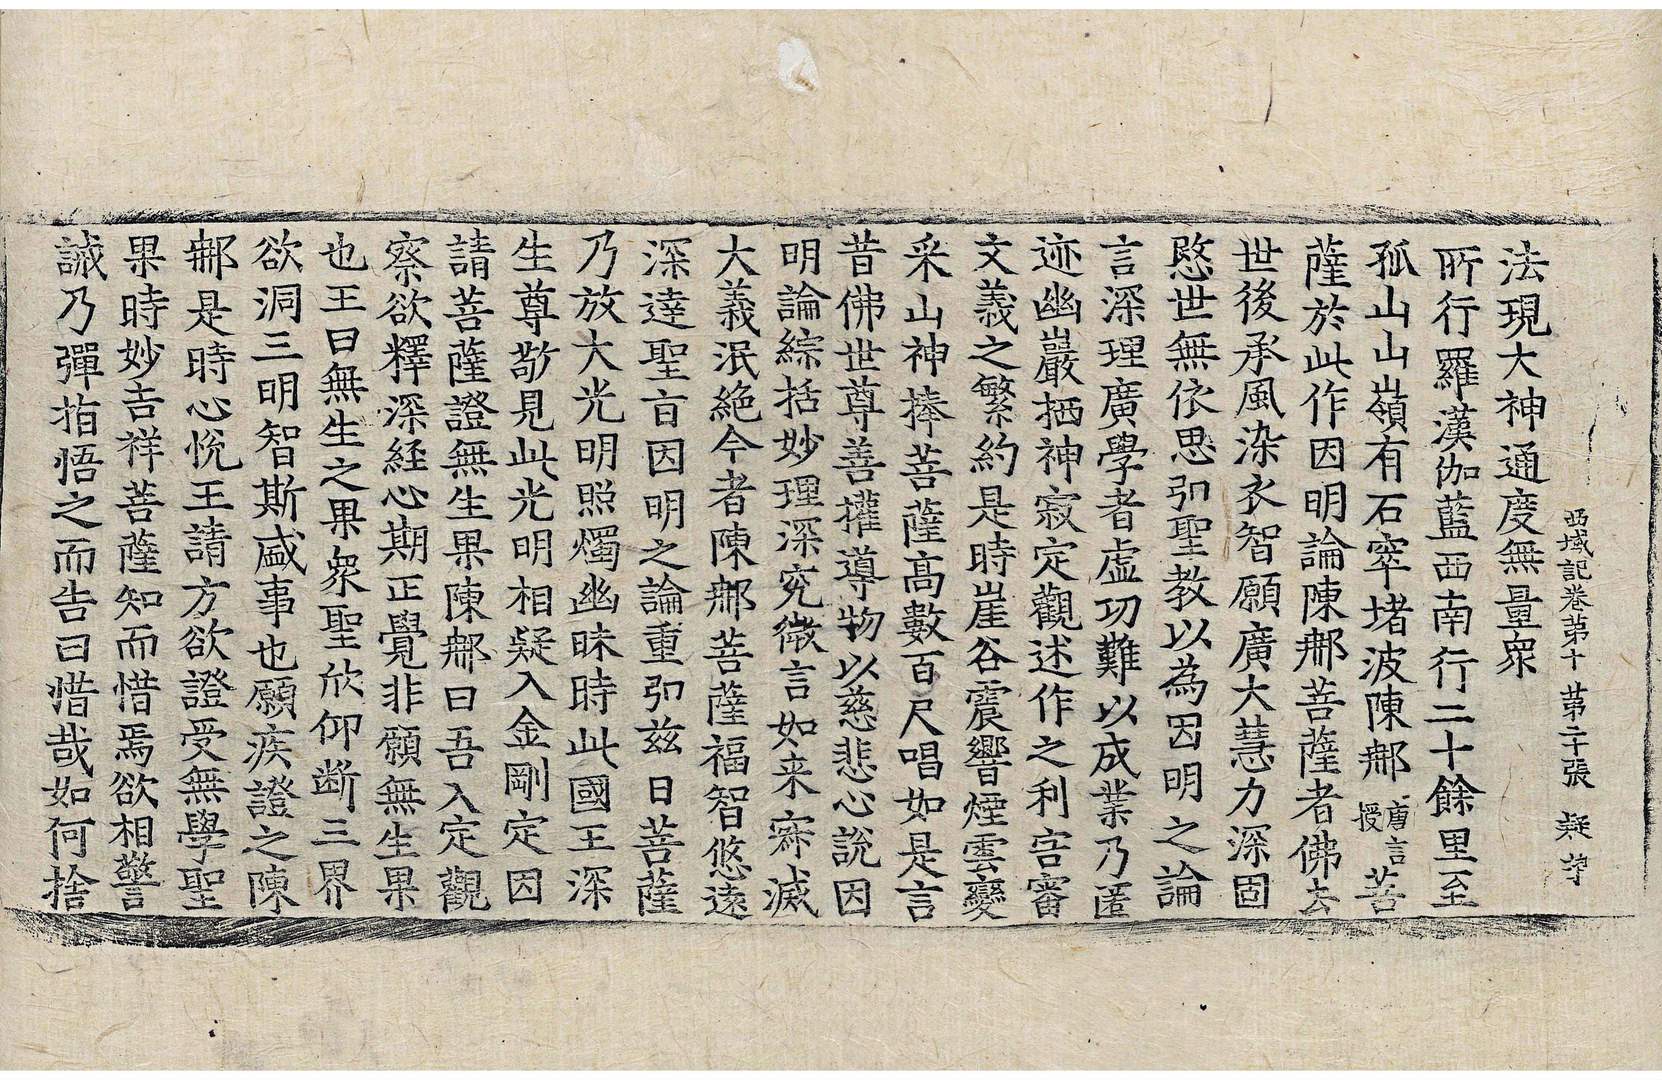 西域記卷第十　第二十張　疑
法現大神通度無量眾
所行羅漢伽藍西南行二十餘里至
孤山山嶺有石窣堵波陳那唐言授菩
薩於此作因明論陳那菩薩者佛去
世後承風染衣智願廣大慧力深固
愍世無依思引聖教以為因明之論
言深理廣學者虛功難以成業乃匿
迹幽巖栖神寂定觀述作之利害審
文義之繁約是時崖谷震響煙雲變
采山神捧菩薩高數百尺唱如是言
昔佛世尊善權導物以慈悲心說因
明論綜括妙理深究微言如来寂滅
大義泯絕今者陳那菩薩福智悠遠
深達聖旨因明之論重引茲日菩薩
乃放大光明照燭幽昧時此國王深
生尊敬見此光明相疑入金剛定因
請菩薩證無生果陳那曰吾入定觀
察欲釋深経心期正覺非願無生果
也王曰無生之果眾聖欣仰断三界
欲洞三明智斯盛事也願疾證之陳
那是時心悅王請方欲證受無學聖
果時妙吉祥菩薩知而惜焉欲相警
誡乃彈指悟之而告曰惜哉如何捨